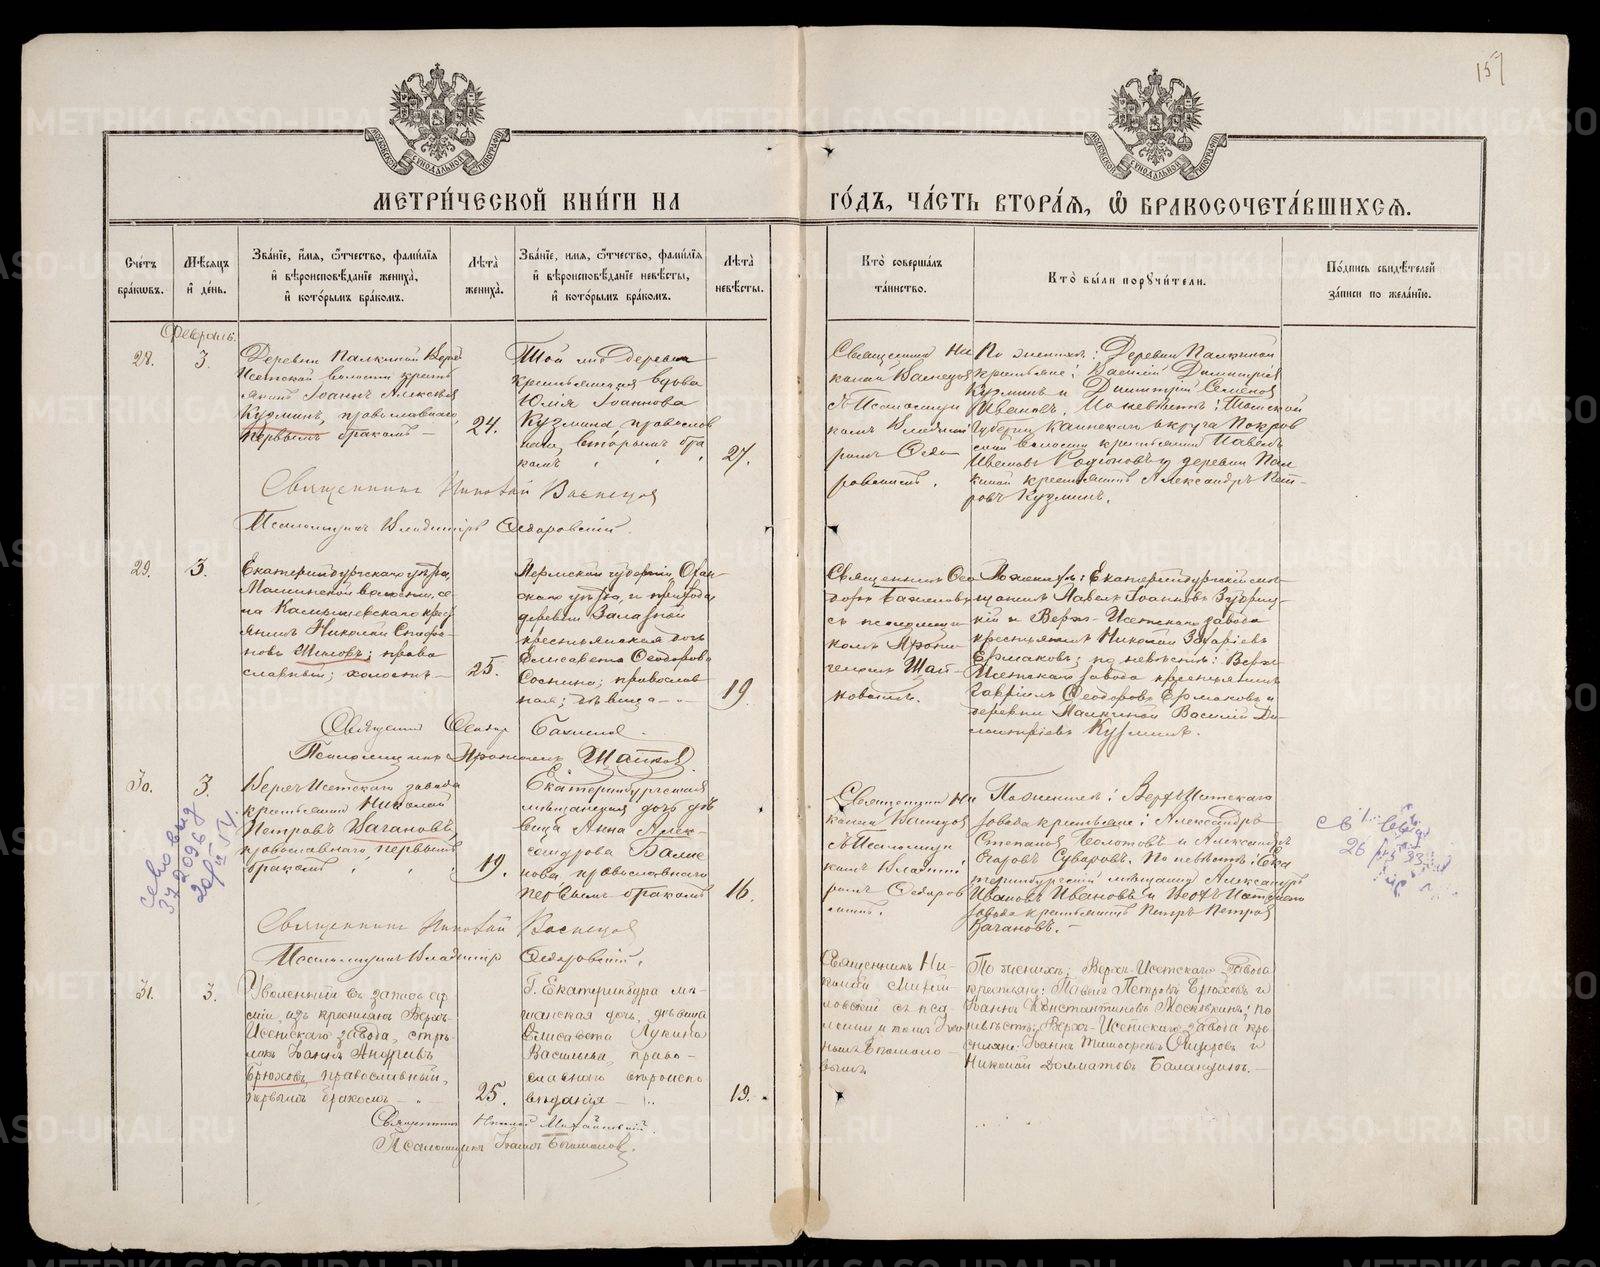 157
МЕТРИ́ЧЕСКОЙ КНИ́ГИ НА
ГО́ДЪ, ЧА́СТЬ ВТОРА́Я, Ѿ БРАКОСОЧЕТА́ВШИХСЯ.
Счетъ бра́кѡвъ.
Мѣсяцъ и день.
Зва́нїе, и҆́мя, ѻ҆́тчество, фами́лїя и҆ вѣроисповѣ́данїе жениха̀, и҆ кото́рымъ бра́комъ.
Лѣта̀ жениха̀.
Зва́нїе, имя, ѻ҆́тчество, фами́лїя и҆ вѣроисповѣ́данїе невѣ́сты, и҆ кото́рымъ бра́комъ.
Лѣта̀ невѣ́сты.
Кто̀ соверша́лъ та́инство.
Кто̀ бы́ли порꙋчи́тели.
По́дпись свидѣ́телей за́писи по жела́нїю.
Февраль.
28.
3.
Деревни Палкиной Верхъ
Исетской волости кресть
янинъ Іоаннъ Алексѣевъ
Кузминъ, православнаго,
первымъ бракомъ —
24.
Той же деревни
крестьянская вдова
Юлія Іоаннова
Кузмина, православ
ная, вторымъ бра
комъ
27.
Священникъ Ни
колай Васнецов
ъ Псаломщи
комъ Владимі
ромъ Ѳедо
ровскимъ.
По женихѣ: Деревни Палкиной
крестьяне: Василій Димитріев
Кузминъ и Димитрій Семенов
Ивановъ. По невѣстѣ: Томской
Губерніи Каинскаго округа Покров
ской волости крестьянинъ Павелъ
Ивановъ Родіоновъ и деревни Пал
киной крестьянинъ Александръ Пет
ровъ Кузминъ.
Священникъ Николай Васнецов
Псаломщикъ Владиміръ Ѳедоровскій.
29.
3.
Екатеринбургскаго уѣзда,
волости, се
ла Камышевскаго крест
янинъ Николай
новъ Шиловъ; право
славный; холостъ —
25.
Пермской губерніи, Охан
скаго уѣзда, и прихода
деревни
крестьянская дочь
Елисавета Ѳеодорова
Соснина; православ
ная; дѣвица — " —
19.
Священникъ Ѳео
доръ Бажановъ
съ псаломщи
комъ
Шай
ковымъ.
По женихѣ: Екатеринбургскій мѣ
щанинъ Павелъ Іоанновъ
кій и Верхъ-Исетскаго завода
крестьянинъ Николай Захаріевъ
Ермаковъ; по невѣстѣ: Верхъ
Исетскаго завода крестьянинъ
Гавріилъ Ѳеодоровъ Ермаковъ и
деревни Палкиной Василій Ди
митріевъ Кузминъ.
Священникъ Ѳеодор Бажанов.
Псаломщикъ Шайков.
30.
3.
Верхъ Исетскаго завода
крестьянинъ Николай
Петровъ Ваганов,
православнаго, первымъ
бракомъ
19.
Екатеринбургская
мѣщанская дочь дѣ
вица Анна Алек
сандрова
нова, православнаго
первымъ бракомъ
16.
Священникъ Ни
колай Васнецов
ъ Псаломщи
комъ Владимі
ромъ Ѳедоров
скимъ.
По женихѣ: Верхъ Исетскаго
завода крестьяне: Александръ
Степанов Болотовъ и Александръ
Егоровъ Суваровъ. По невѣстѣ: Ека
теринбургскій мѣщанинъ Александръ
Ивановъ Ивановъ и Верхъ Исетскаго
завода крестьянинъ Петръ Петров
Вагановъ. —
Священникъ Николай Васнецов
Псаломщикъ Владимір Ѳедоровскій.
31.
3.
Уволенный въ запасъ ар
міи, изъ крестьянъ Верхъ-
Исетскаго завода, стрѣ
локъ Іоаннъ Андреевъ
Брюховъ, православный,
первымъ бракомъ — " —
25.
Г. Екатеринбура мѣ
щанская дочь, дѣвица
Елисавета Лукина
Васильева, право
славнаго вѣроиспо
вѣданія — " —
19.
Священникъ Ни
колай Михай
ловскій съ пса
ломщикомъ Іоан
номъ Богомоло
вымъ
По женихѣ: Верхъ-Исетскаго Завода
крестьяне: Павелъ Петровъ Брюховъ и
Іоаннъ Константиновъ Московкинъ; по
невѣстѣ: Верхъ-Исетскаго завода кре
стьяне: Іоаннъ Тимоѳеевъ и
Николай Долматовъ Баландинъ. —
Священникъ Николай Михайловскій
Псаломщикъ Іоаннъ Богомолов.